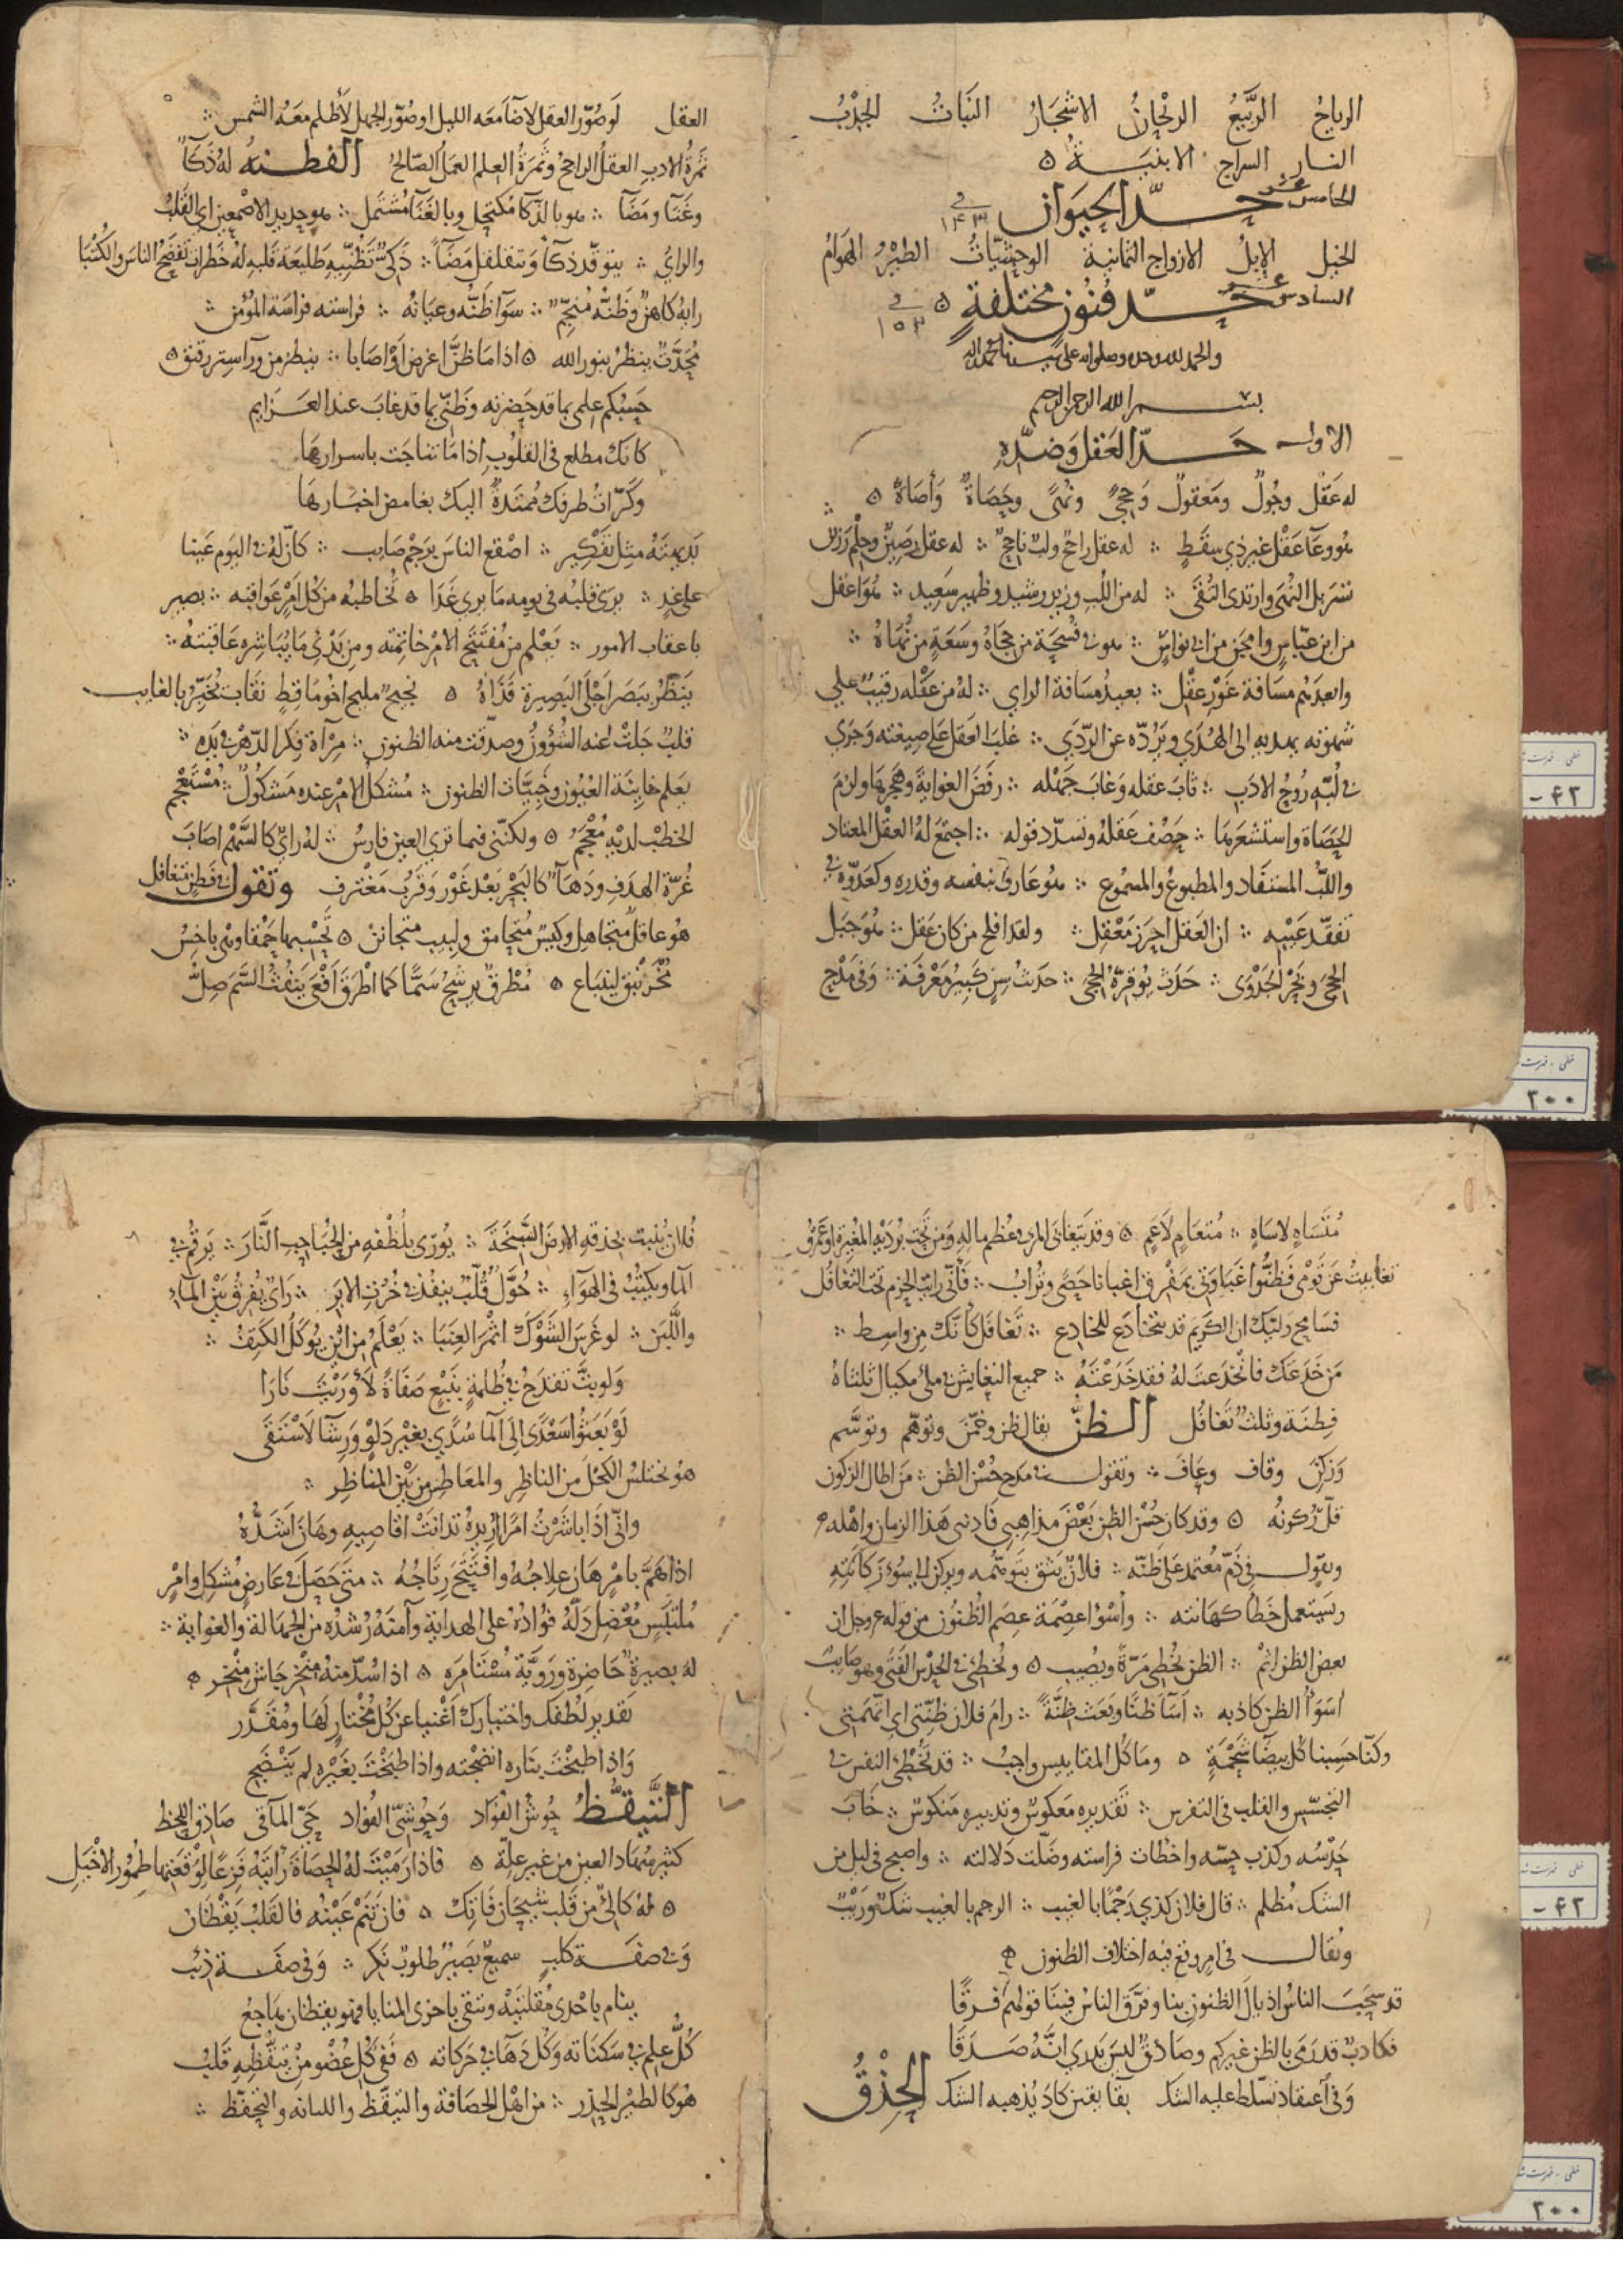 الرياحُ الرَّبيعُ الرَّيْحانُ الاشجارُ النَباتُ الجَدْبُ
النار السراج الابنيَةُ ه
الخامس عشر حدّ الحيوان في ١٤٣
الخيل الإبلُ الازواج الثمانية الوحشيّاتُ الطيْرُ الهَوامُ
السادس عشر حدّ فنُونٍ مختلفةٍ ه في ١٥٣
والحمد لله وحده وصلواته على سيدنا محمد واله
بسم الله الرحمن الرحيم
الاول حدّ العَقل وَضدّه
له عَقْل وجُولٌ ومَعقولٌ وَحِجًى ونُهًى وحَصَاةٌ وَأصَاةٌ ه
هو وعَآ عَقْل غير ذي سقَطٍ ∴ له عقل راجحٌ ولبٌ ناجحٌ ∴ له عقل رصينٌ وحِلْم رزين
تسَربل النُهَى وارتدى التُقَى ∴ له من اللُبِ وزير رشيد وظهير سَعِيد ∴ هُوَ اعقل
من ابن عبّاسٍ وامجَن من ابي نواسٍ ∴ هو في فُسْحَةٍ من حِجَاهُ وسَعَةٍ من نُهَاهُ ∴
وابعدهُم مسَافة غَوْر عقْلٍ ∴ بعيدُ مسَافة الراي ∴ لهُ من عَقْله رقيبٌ علي
شهوته يهديه الى الهُدَي ويَرُدّه عن الرّدَي ∴ غلبَ العَقل على صيغته وَجَرَي
في لُبّه رُوحُ الادَب ∴ ثابَ عقله وَغابَ جَهْله ∴ رفَضَ الغوايةَ وهَجرَها ولزمَ
الحَصَاة واستشعَرهَا ∴ حَصُف عَقلهُ وتسدّد قوله ∴ اجتمَعَ لهُ العقل المعتاد
واللُبُّ المستفَاد والمطبوعُ والمسْمُوع ∴ هو عارفٌ بنفسه وقدره وكعَدوّه في
تفقّد عَيْبه ∴ ان العَقل احرَز مَعْقِل ∴ ولقد افلح من كان عَقل ∴ هُوَ جَبَل
الحِجَى وبَحْر الجَدْوَى ∴ حَدَثٌ يُوقرّهُ الحِجَى ∴ حدَث سِنٍ كَبِيرُ مَعْرفَة ∴ وَفي مَدْح
العقل لَو صُوّر العقل لاضآ مَعَه الليل او صُوّر الجهل لأظلم معَهُ الشمس ∴
ثَمرةُ الادب العقلُ الراجحُ وثَمرَةُ العِلم العمَلُ الصّالحُ الفطنه لهُ ذَكآً
وغَنَآ ومَضَآ ∴ هو بالذكآ مُكتحِل وبالغَنَآ مُشتَمل ∴ هو حديد الاصْمعين اي القَلب
والرايُ ∴ يتوقّد ذكآً وَيتغلغل مَضَآً ∴ ذَكيٌّ تَظَنّيهِ طَليعَة قَلبِهِ لهُ خَطرات تَفضَحُ الناسَ والكُتْبَا
رايهُ كاهنٌ وَظنّه مُنجّمٌ ∴ سوَآ ظَنّه وعيَانُه ∴ فراسته فراسَة المُؤمن ∴
مُحَدَّثٌ ينظرُ بنور الله ه اذا مَا ظنَّ اغرض اوْ اصَابا ∴ ينظر من ورآ ستر رقيق ه
حَسبُكم علمي بما قد حَضرته وظَنّي بما قد غابَ عند العَزايم
كانك مطلع في القلوب اذا مَا تناجَت باسرارهَا
وكَرّاتُ طرفك مُمتَدةٌ اليك بغامض اخبَارهَا
بَديهتهُ مثل تَفكيرٍ ∴ اصْقع الناسَ برَجم صايب ∴ كانّ لهُ في اليَوم عَينا
على غدٍ ∴ يرَى قلبُه في يومه مَا يرى غَدَا ه تُخاطبُه من كُل امْرٍ عَواقبُه ∴ بصير
باعقاب الامور ∴ يَعْلم من مُفتَتَح الامْر خاتِمَته ومن بَدْئ مَا يُباشره عَاقبَتهُ ∴
يَنظرُ ببَصَر اجْلَى البَصيرة قَذَاهُ ه نجيحٌ مليح اخُو مَاقِطٍ نقّاب يُخبّرُ بالغايب
قلبٌ جَلَتْ عنه الشُؤونُ وصدّقت منه الظنون ∴ مِرْآة فِكر الدّهْر في يَدِه ∴
يعلم خاينَة العيُون وخَبيّات الظنون ∴ مُشكل الامْر عنده مَشكُولٌ ∴ مُستَعْجم
الخطبْ لديْهِ مُعْجَمُ ه ولكنّني فيما تري العين فارسُ ∴ لهُ رايٌ كالسَّهْم اصَابَ
غُرّة الهدَفِ ودَهَآ كالبَحْر بَعُد غَوْر وَقَرُب مَغْترف وتقول في فَطِنٍ متغافل
هُو عاقلٌ متجاهِل وكيّسٌ مُتحامق ولبيب متجانن ه تَحْسِبها حَمْقا وهي باخسُ
مُخْرَنْبقٌ لينبَاع ه مُطْرقٌ يَرشحُ سَمًّا كما اطْرَقَ افْعَى يَنفُثُ السَّم صِلُّ
مُتَسَاهٍ لاسَاهٍ ∴ مُتعَامٍ لاَعَمٍ ه وقد يَتغابَى المرءُ في عُظم مالهِ وَمن تحت بُرْدَيْه المُغيرَةُ او عَمْرُو
تغابيتُ عن قَومي فظنُّوا غَبَاوَتي بمَفْرِق اغبانا حَصًى وتُراب ∴ فأتّي رايتُ الحزم تحت التغافُل
فسَامِح رايتك ان الكريم قد يتخادَع للمخادع ∴ تَغافَل كانّك من واسِط ∴
مَن خَدعَك فانْخدَعتَ لهُ فقد خَدَعْتَهُ ∴ جميع التعَايش في ملئ مكيال ثلثاهُ
فِطنَة وثلثٌ تَغافُل الظنُّ يقال ظن وخمّن وتوهّم وتوسَّم
وَزكِنَ وقاف وعَافَ ∴ وتقول في مدح حُسْن الظن ∴ مَن اطال الركون
قلّ رُكونُه ه وقد كان حُسْن الظن بَعْضَ مذاهِبي فَادبني هَذا الزمان واهْله ه
وتقول في ذَمّ مُعتمد على ظنّه ∴ فلانٌ يَثق بتَوهّمه ويركن الي سُوء زكانَتِه
ويَستعمل خَطأ كهَانته ∴ واسْوُا عِصْمَة عِصَم الظُنُون من قوله عز وجل ان
بعض الظن اثمٌ ∴ الظن يُخطي مَرّةً ويُصيب ه وتُخطئ في الحَدْس الفَتَى وهو صايبٌ
اسَوَأُ الظن كاذبه ∴ اسَآ ظنًّا وبَعَث ظِنَّةً ∴ رامَ فلان ظِنّتي اي اتّهَمني
وكنّا حَسِبنا كُل بيضَآ شَحْمَةٍ ه ومَا كلُ المقاييس واجبٌ ∴ قد تُخْطئ النفس في
التحسّس والقلب في التفرس ∴ تقديره مَعكوسٌ وتدبيره منكوسٌ ∴ خَابَ
حَدْسُه وكذب حِسّه واخطات فراسته وضَلّت دَلالته ∴ واصبح في ليل من
الشك مُظلم ∴ قال فلان كذي رَجْمًا بالغيب ∴ الرجم بالغيب شكٌ وَرَيْبٌ
ويُقال في امرٍ وقع فيه اختلاف الظنون ه
قد سحَبَ الناسُ اذيالَ الظنونِ بنا وفرّق الناسُ فينَا قولهُم فِرَقًا
فكاذبٌ قد رَمَى بالظن غيركم وصَادقٌ ليسَ يَدري انّهُ صَدَقَا
وَفي اعتقاد تسَلّط عليه الشك بقآ يقين كادَ يُذهبه الشك الحِذْقُ
فُلانٌ يُنبت بحذقهِ الارضَ السَّبِخَةَ ∴ يُورّى بلُطْفهِ من الحُبَاحِب النَّارَ ∴ يَرقُم في
المآ ويكتبُ في الهوَآءِ ∴ حُوَّلٌ قُلَّبٌ ينفُذ في خُرْت الابَر ∴ رَايٌ يُفرقُ بَيْن المآءِ
واللَّبَن ∴ لو غَرسَ الشَوْكَ اثمْرَ العِنَبَا ∴ يَعْلَمُ من ايْن يُوكَلُ الكتِفُ ∴
وَلو بتَّ تقدَحُ في ظُلمةٍ بنَبْع صَفَاةً لأوْرَيْتَ نَارَا
لَوْ بَعَثُوا سَعْدًى الى المآ سُدًي بغَيْر دَلْوٍ وَرِشآ لاسْتَقَى
هُو يَختلسُ الكحْل من الناظِر والمعَاطِس من بَيْن المناظِر ∴
واِنّي اذَا باشَرْتُ امرًا اريدُهُ تدانَتْ اقاصِيهِ وهَان اشَدُّهُ
اذا هَمَّ بامْرٍ هَان عِلاجُهُ وافتَتحَ رِتَاجُهُ ∴ مَتَى حَصَل في عَارض مُشكِل وامْرٍ
مُلتَبَس مُعْضِل دَلّهُ فُؤادُهُ على الهداية وآمنَهُ رُشدُه من الجهالة والغواية ∴
لهُ بصيرةٌ حَاضِرة ورَويَّة مُستَامِرَه ه اذا سُدّ منهُ مَنْخر جَاشَ مَنْخر ه
بقدير لُطفِك واختيارك اغْنيا عن كُلّ مُختارٍ لَهَا ومُقَدَّر
وَاذا طبخْتَ بنَاره انضَجْته واذا طبَخْتَ بغَيْره لم يَنْضَج
التَّيقُّظ حُوشُ الفُؤاد وَحُوشيّ الفُؤاد حَيّ المآقي صَادق اللحظ
كثير سُهادِ العين من غير عِلّة ه فاذا رمَيْتَ لهُ الحصَاةَ رَايَتَهُ فَزِعًا لوَقْعَتِها طُمُور الاخْيَل
ه لهُ كاليٌّ من قلب شَيْحَانَ فَاتِكْ ه فان تَنَمْ عَيْنُه فالقَلبُ يَقْظَان
وَفي صفَة كلبٍ سميعٌ بَصِيرٌ طلوبٌ نَكِر ∴ وَفي صفَة ذئب
ينام باحْدى مُقلتَيْهِ ويتقي باخرى المنايا فهو يقظان هَاجِعُ
كُلُّ علمٍ في سَكنَاته وَكُلّ دَهآ في حَركاته ه فَفي كُل عُضْوٍ منْ تيَقُّظِهِ قلبُ
هُو كالطيْر الحَذِر ∴ من اهْل الحصَافة والتيقّظ واللبابه والتحفّظ ∴